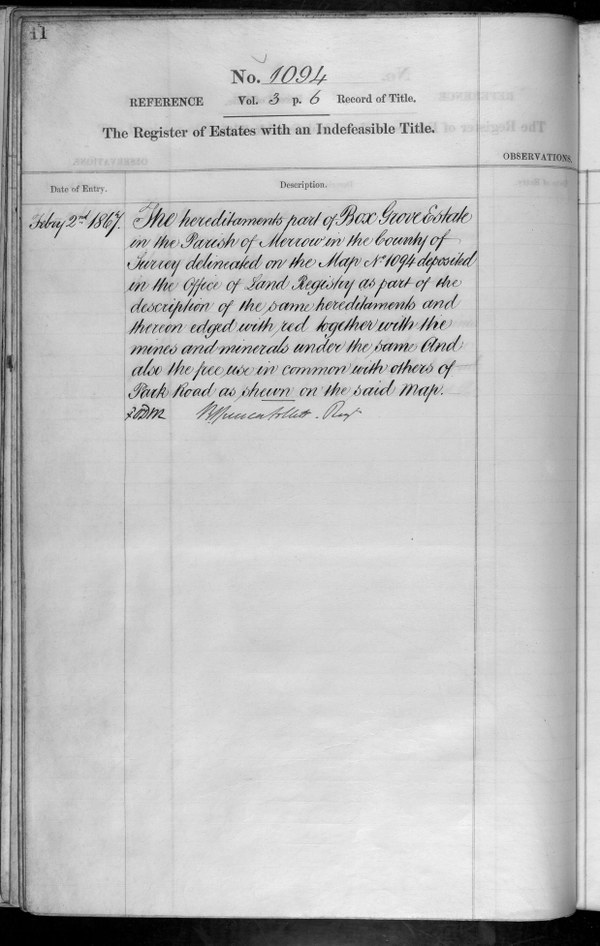 11
No. 1094
REFERENCE Vol. 3 p. 6 Record of Title.
The Register of Estates with an Indefeasible Title.
OBSERVATIONS.
Date of Entry.
Description.
Febry 2nd 1867.
The hereditaments part of Box Grove Estate
in the Parish of Merrow in the County of
Surrey delineated on the Map No 1094 deposited
in the Office of Land Registry as part of the
description of the same hereditaments and
thereon edged with red together with the
mines and minerals under the same And
also the free use in common with others of
Park Road as shewn on the said Map.